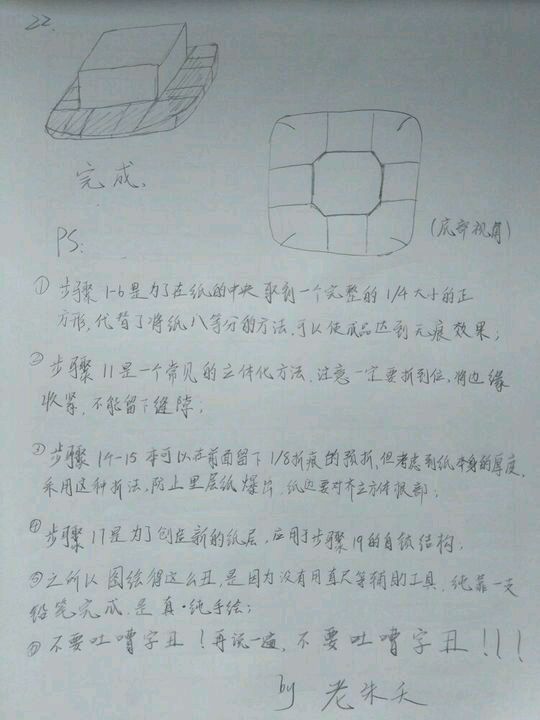 22.
完成.
(底部视角)
PS:
① 步骤1-6是为了在纸的中央取到一个完整的1/4大小的正
方形,代替了将纸八等分的方法.可以使成品达到无痕效果;
② 步骤11是一个常见的立体化方法.注意一定要折到位,将边缘
收紧.不能留下缝隙;
③ 步骤14-15本可以在前面留下1/8折痕的预折,但考虑到纸本身的厚度,
采用这种折法,防止里层纸爆开.纸边要对齐立方体根部;
④ 步骤17是为了创造新的纸层,应用于步骤19的自锁结构.
⑤ 之所以图绘得这么丑,是因为没有用直尺等辅助工具.纯靠一支
铅笔完成.是真·纯手绘;
⑥ 不要吐嘈字丑!再说一遍,不要吐嘈字丑!!!
by 老朱